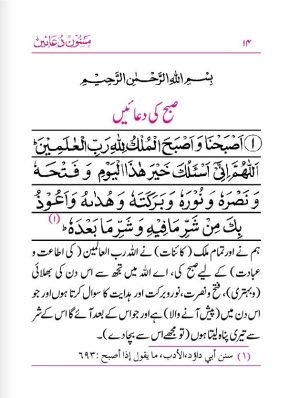 مسنون دعائیں ۱۴
بِسْمِ اللهِ الرَّحْمٰنِ الرَّحِيْمِ
صبح کی دعائیں
① اَصْبَحْنَا وَ اَصْبَحَ الْمُلْكُ لِلهِ رَبِّ الْعٰلَمِيْنَ ؕ
اَللّٰهُمَّ اِنِّىْ اَسْئَلُكَ خَيْرَ هٰذَا الْيَوْمِ وَ فَتْحَهٗ
وَ نَصْرَهٗ وَ نُوْرَهٗ وَ بَرَكَتَهٗ وَ هُدٰىهُ وَ اَعُوْذُ
بِكَ مِنْ شَرِّ مَا فِيْهِ وَ شَرِّ مَا بَعْدَهٗ ؕ (۱)
ہم نے اور تمام ملک (کائنات) نے اللہ رب العالمین (کی اطاعت و
عبادت) کے لیے صبح کی، اے اللہ میں تجھ سے اس دن کی بھلائی
(و بہتری)، فتح و نصرت، نور و برکت اور ہدایت کا سوال کرتا ہوں اور جو
اس دن میں (پیش آنے والا) ہے اور جو اس کے بعد آئے گا اس کے شر
سے تیری پناہ لیتا ہوں (تو مجھے اس سے بچا دے)۔
(۱) سنن أبي داؤد، الأدب، ما يقول إذا أصبح : ۶۹۳